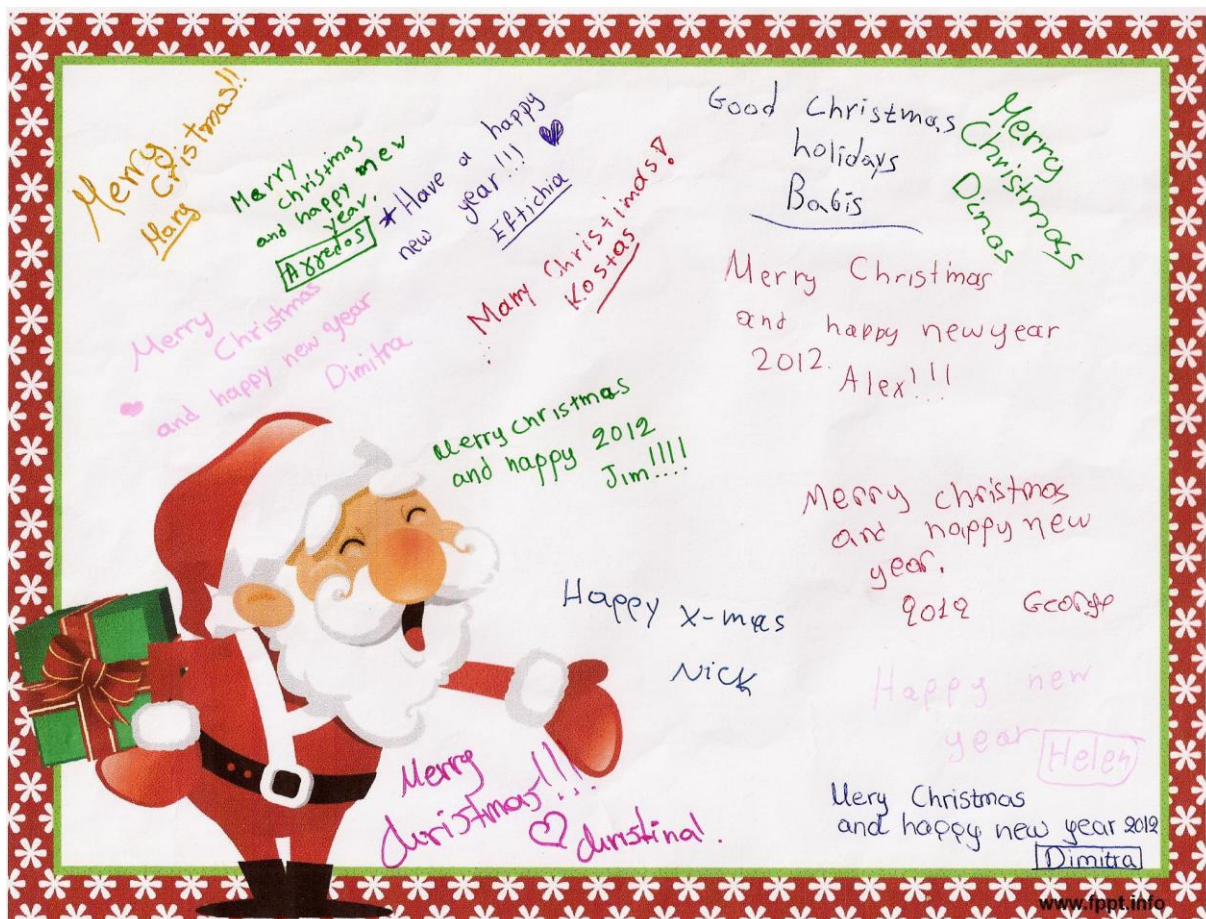 Merry
Christmas!!
Mary
Merry
christmas
and happy new
year.
Αγγελος
*Have a happy
new year!!!
Eftichia
Marry Christimas!
Kostas
Good Christmas
holidays
Babis
Merry
Christmass
Dinos
Merry Christimas
and happy newyear
2012.
Alex!!!
Merry
Christmas
and happy new year
Dimitra
Merry christmas
and happy 2012
Jim!!!!
Merry christmas
and happy new
year.
2012 George
Happy x-mas
Nick
Happy new
year Helen
Merry
christmas!!!
christina!
Mery Christmas
and happy new year 2012
Dimitra
www.fppt.info